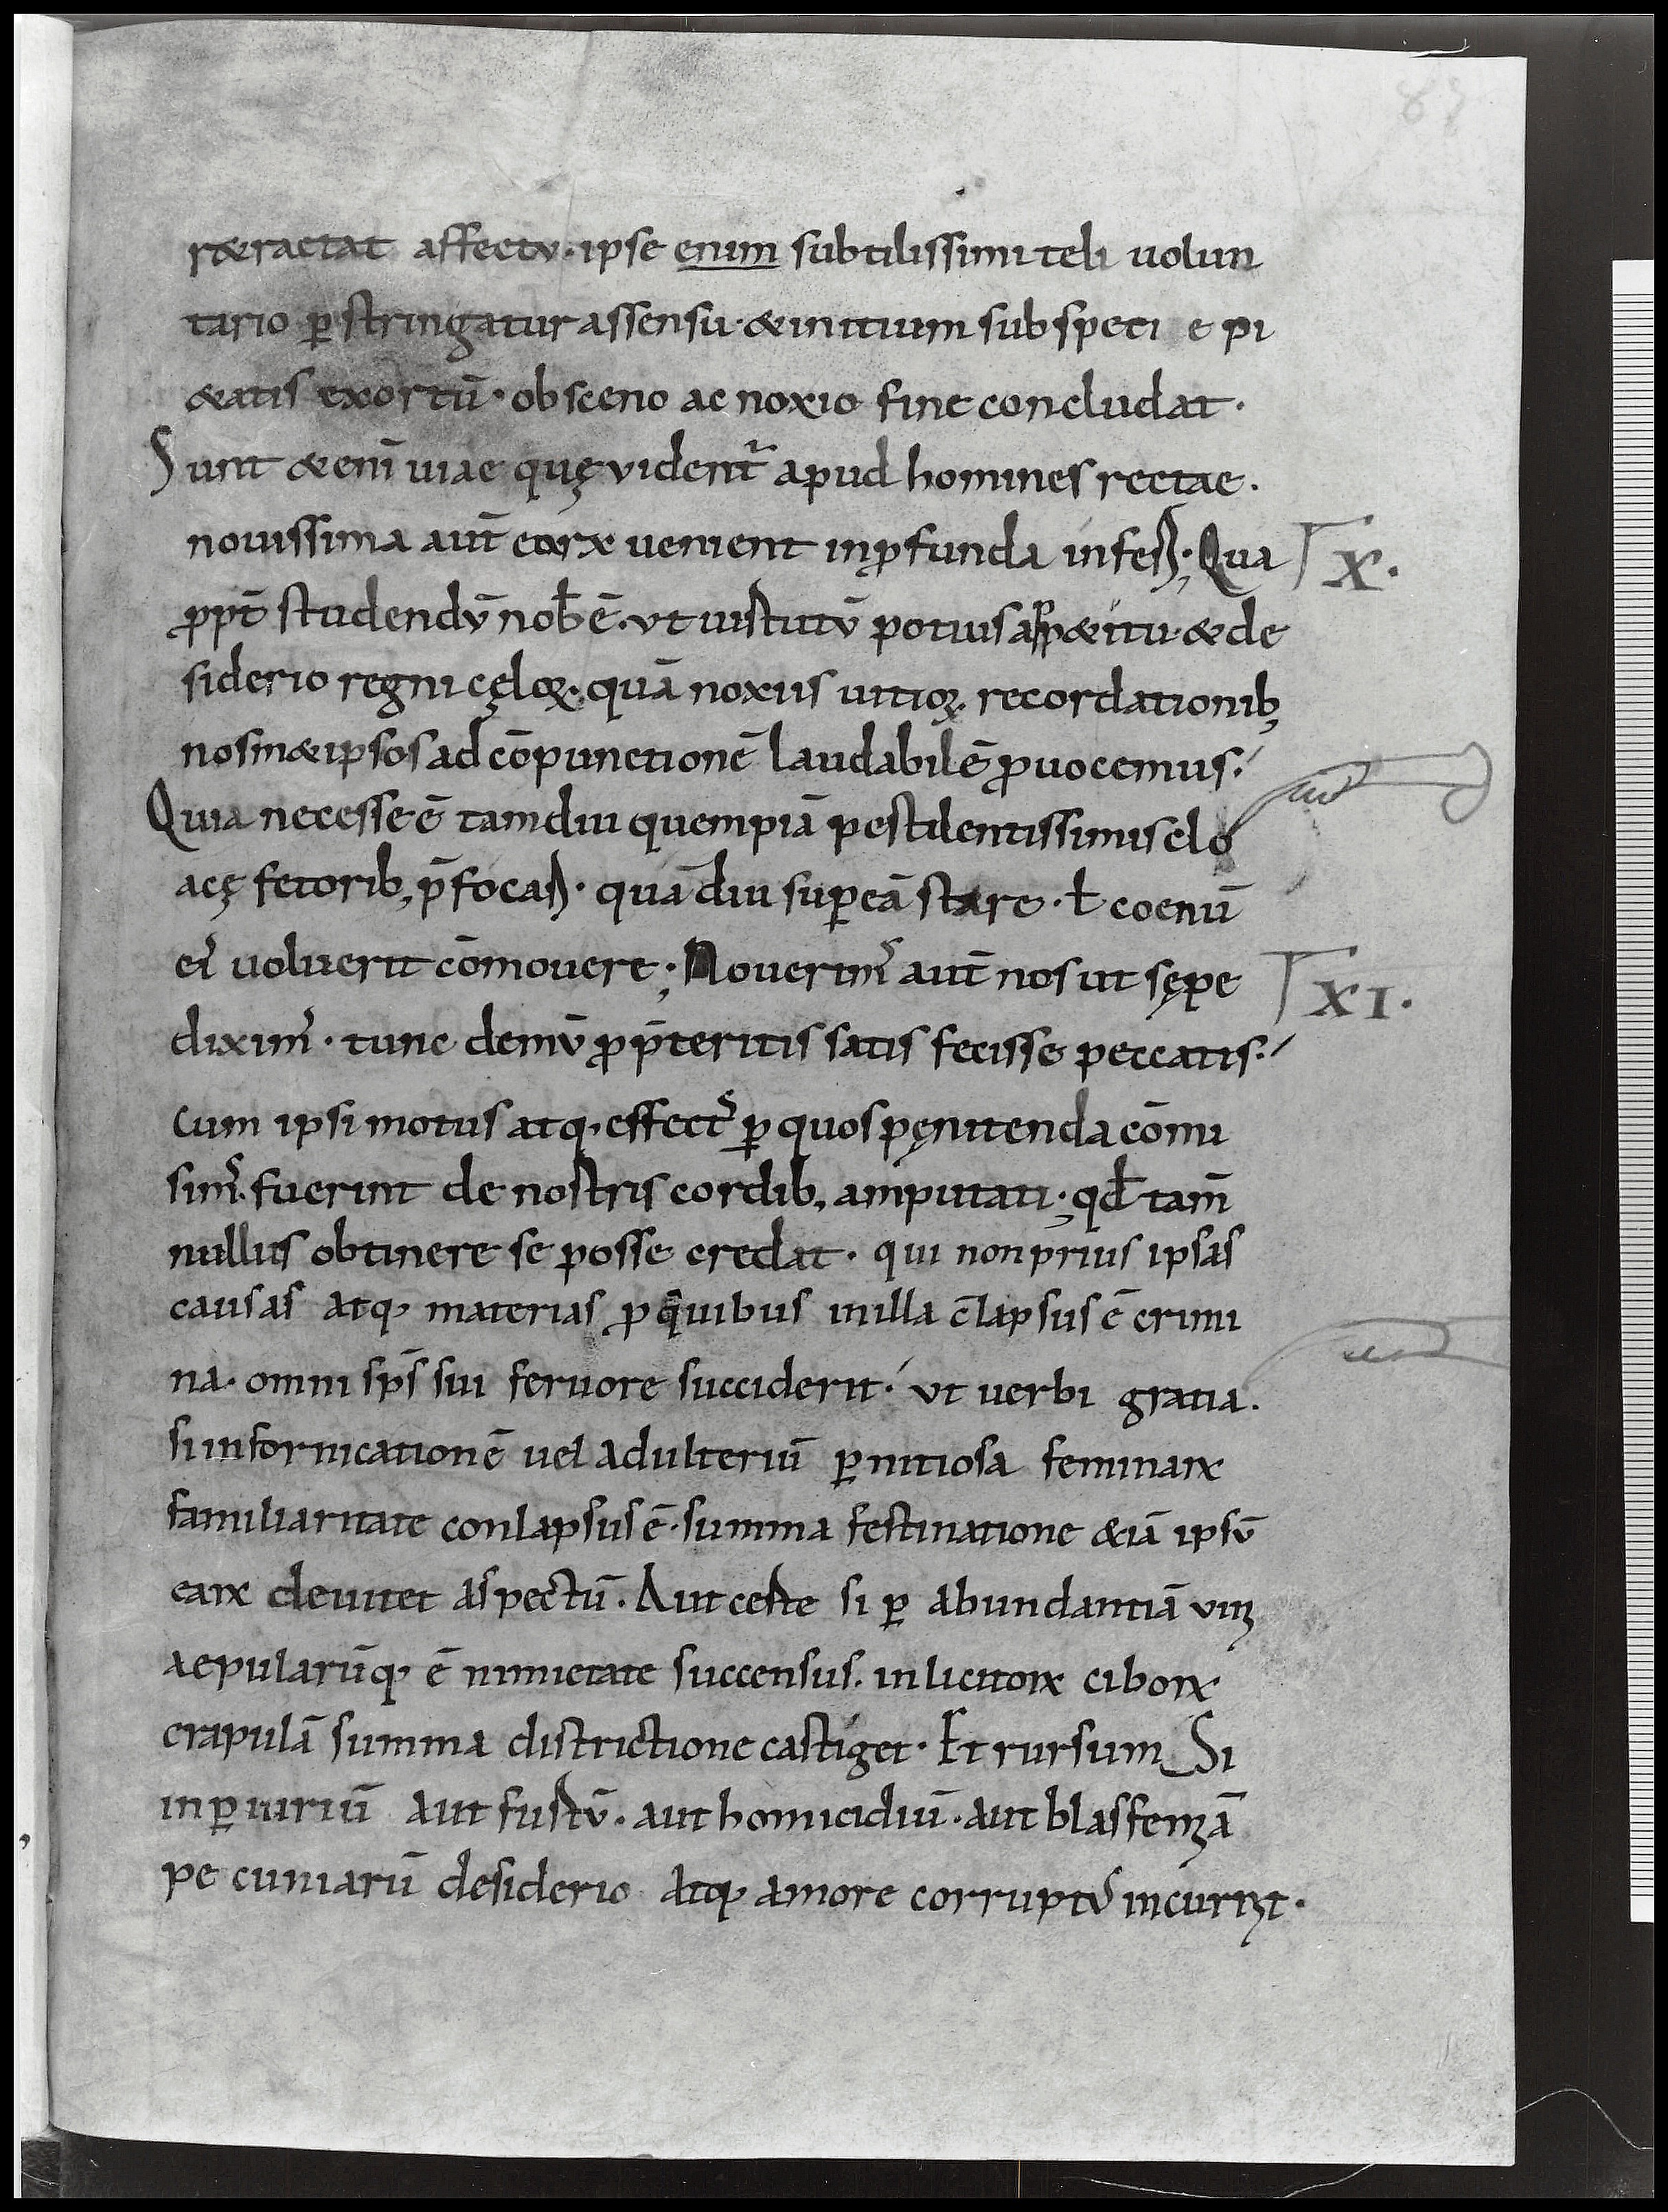 88
r&ractat affectu · ipse enim subtilissimi teli uolun
tario ꝑstringatur assensu · & initium sub speci e pi
&atis exortū · obsceno ac noxio fine concludat ·
Sunt & enī uiae quę vident᷑ apud homines rectae ·
nouissima aut̄ eoꝝ uenient inꝓfunda inferi · Qua X ·
ꝓpt̄ studendū nob̄ ē · ut uirtutū potius app&itu · & de
siderio regni cęloꝝ · quā noxiis uitioꝝ recordationib;
nosm&ipsos ad cōpunctionē laudabilē ꝓuocemus ·
Quia necesse ē tamdiu quempiā pestilentissimis clo
acę fetorib; p̄focari · quādiu suꝑ eā stare · ł coenū
ei᷒ uoluerit cōmouere ; Nouerim᷒ aut̄ nos ut sępe XI ·
dixim᷒ · tunc demū ꝓ p̄teritis satis fecisse peccatis ·
Cum ipsi motus atq; effect᷒ ꝑ quos pęnitenda cōmi
sim᷒ · fuerint de nostris cordib; amputati ; qd̄ tam̄
nullus obtinere se posse credat · qui non prius ipsas
causas atq; materias ꝓ quibus in illa c̄lapsus ē crimi
na · omni sp̄s sui feruore succiderit · ut uerbi gratia ·
si in fornicationē uel adulteriū ꝑnitiosa feminaꝝ
familiaritate conlapsus ē · summa festinatione &iā ipsū
eaꝝ deuitet aspectū · Aut certe si ꝑ abundantiā uini
aepularūq; ē nimietate succensus · inlicitoꝝ ciboꝝ
crapulā summa districtione castiget · Et rursum Si
in ꝑiuriū aut furtū · aut homicidiū · aut blasfemiā
pecuniarū desiderio atq; amore corrupt᷒ incurrit ·